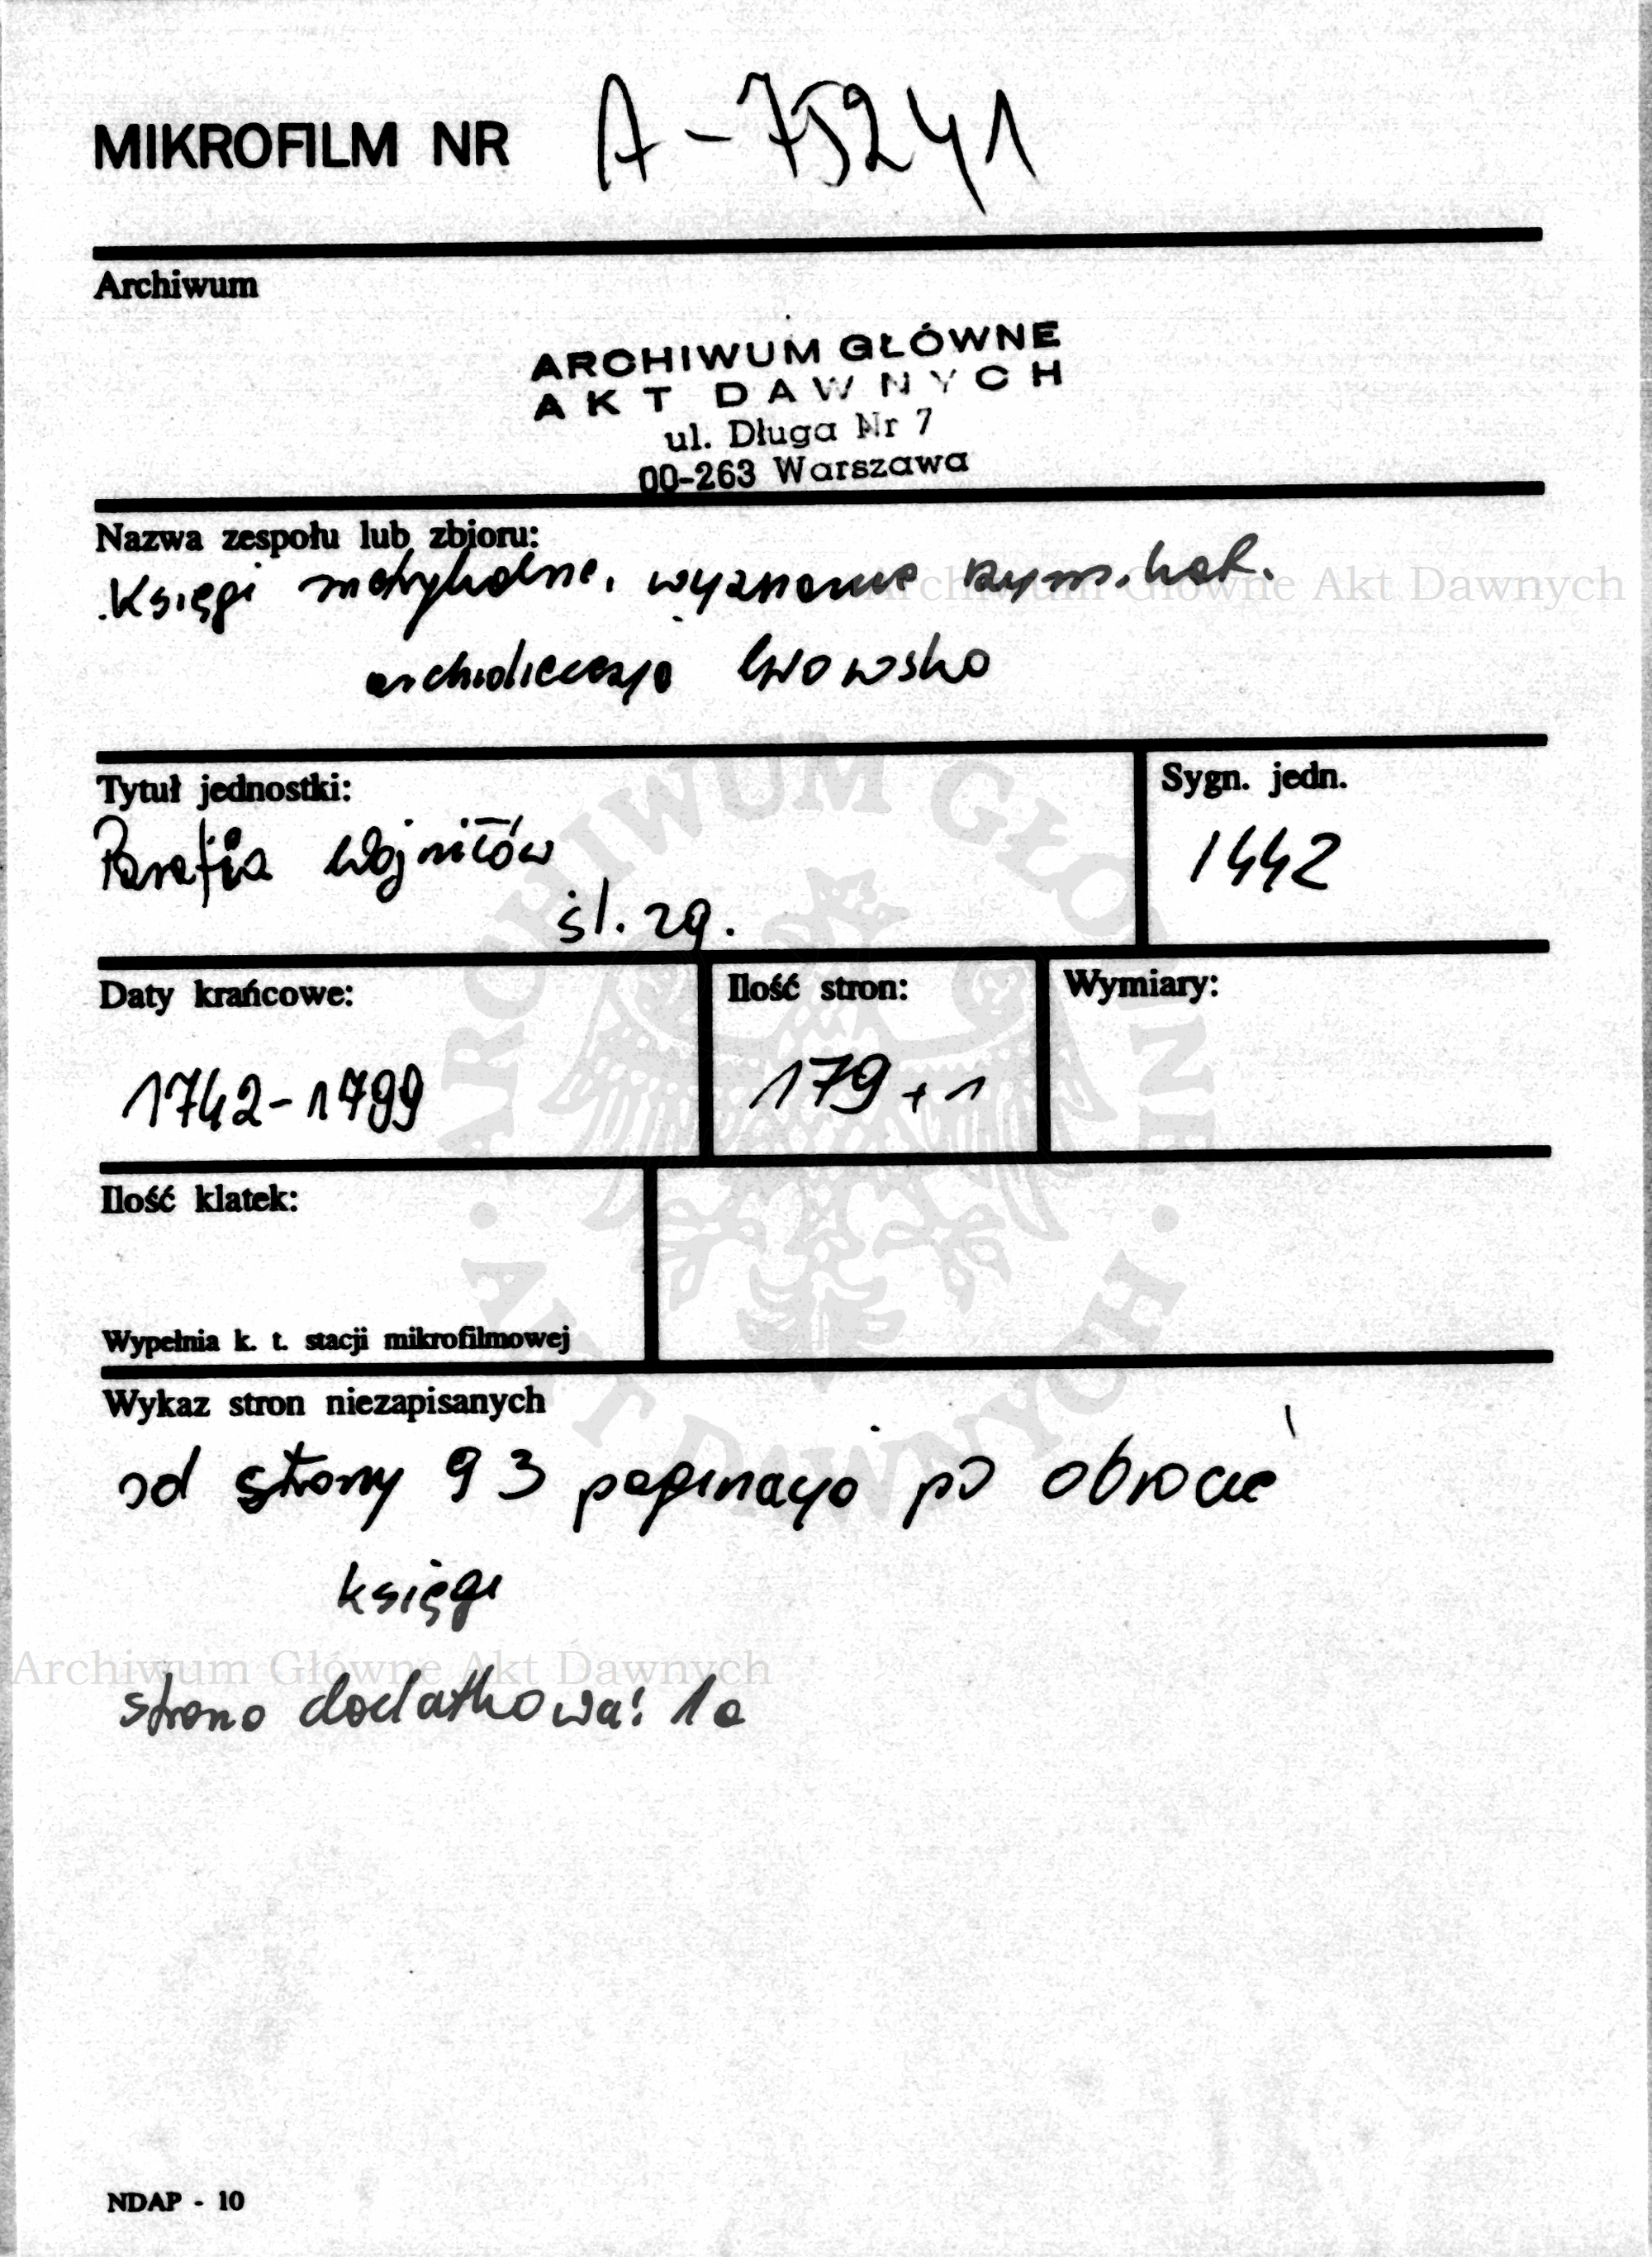 MIKROFILM NR A-75241
Archiwum
ARCHIWUM GŁÓWNE
AKT DAWNYCH
ul. Długa Nr 7
00-263 Warszawa
Nazwa zespołu lub zbioru:
Księgi metrykalne, wyznanie rzym. kat.
Archiwum Główne Akt Dawnych
archidiecezja lwowska
Tytuł jednostki:
Parafia Wojniłów
śl. zg.
Sygn. jedn.
1442
Daty krańcowe:
1742-1799
Ilość stron:
179+1
Wymiary:
Ilość klatek:
Wypełnia k. t. stacji mikrofilmowej
ARCHIWUM GŁÓWNE · AKT DAWNYCH ·
Wykaz stron niezapisanych
od strony 93 paginacja po obrocie
księgi
Archiwum Główne Akt Dawnych
strona dodatkowa: 1a
NDAP - 10